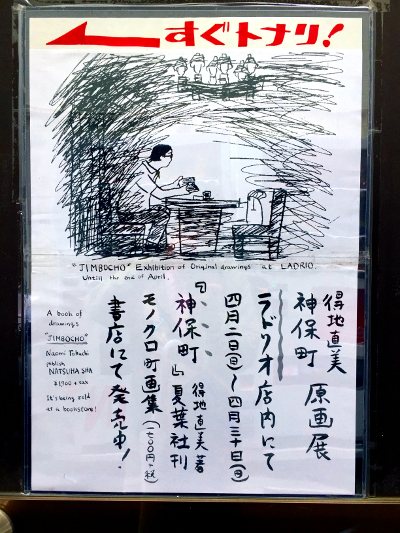 すぐトナリ!
"JIMBOCHO" Exhibition of Original drawings at LADRIO.
Untill the end of April.
得地直美
神保町 原画展
ラドリオ店内にて
四月二日(日)〜四月三十日(日)
『神保町』 得地直美著 夏葉社刊
モノクロ町画集(1700円+税)
書店にて発売中!
A book of
drawings
"JIMBOCHO"
Naomi Tokuchi
publish
NATSUHA SHA
¥1700+tax
It's being sold
at a bookstore!